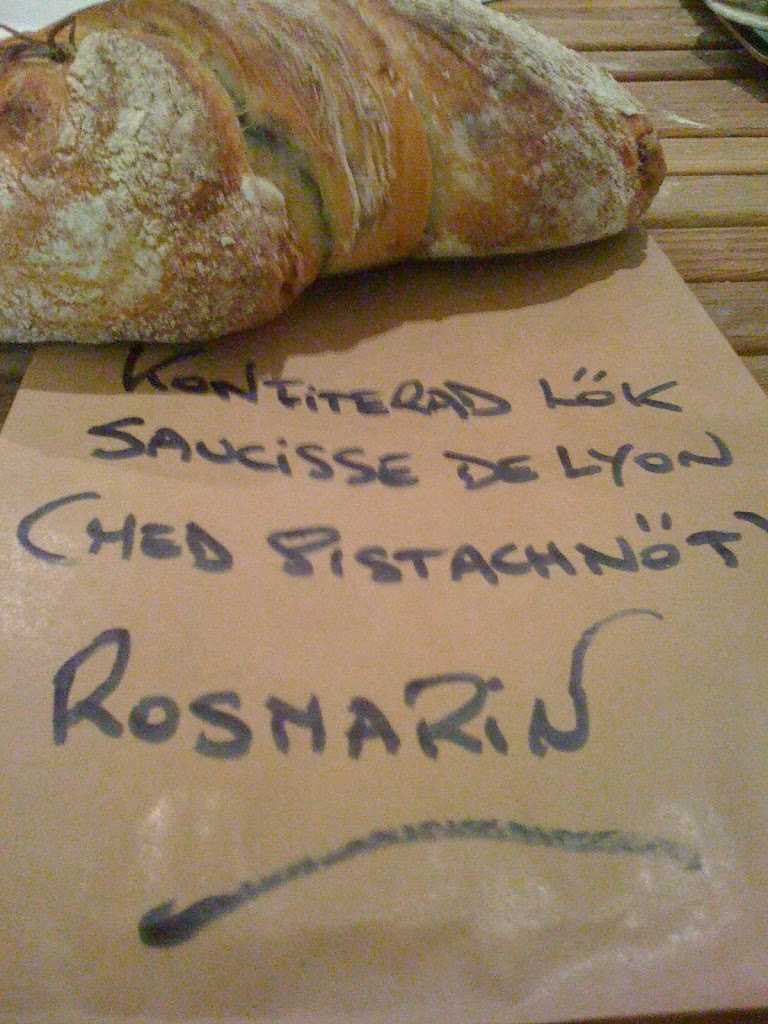 KONFITERAD LÖK
SAUCISSE DE LYON
(MED PISTACHNÖT)
ROSMARIN